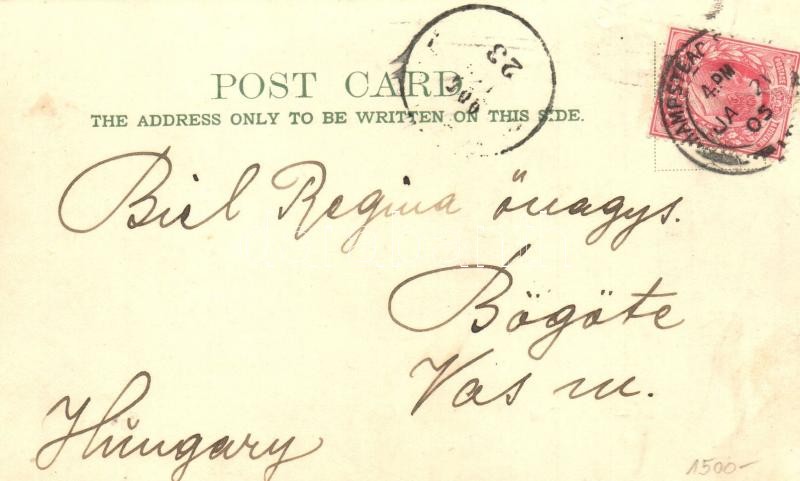 POST CARD.
THE ADDRESS ONLY TO BE WRITTEN ON THIS SIDE.
23
HAMPSTEAD
4.PM
JA 21
05
Biel Regina önagys.
Bögöte
Vas m.
Hungary
1500-